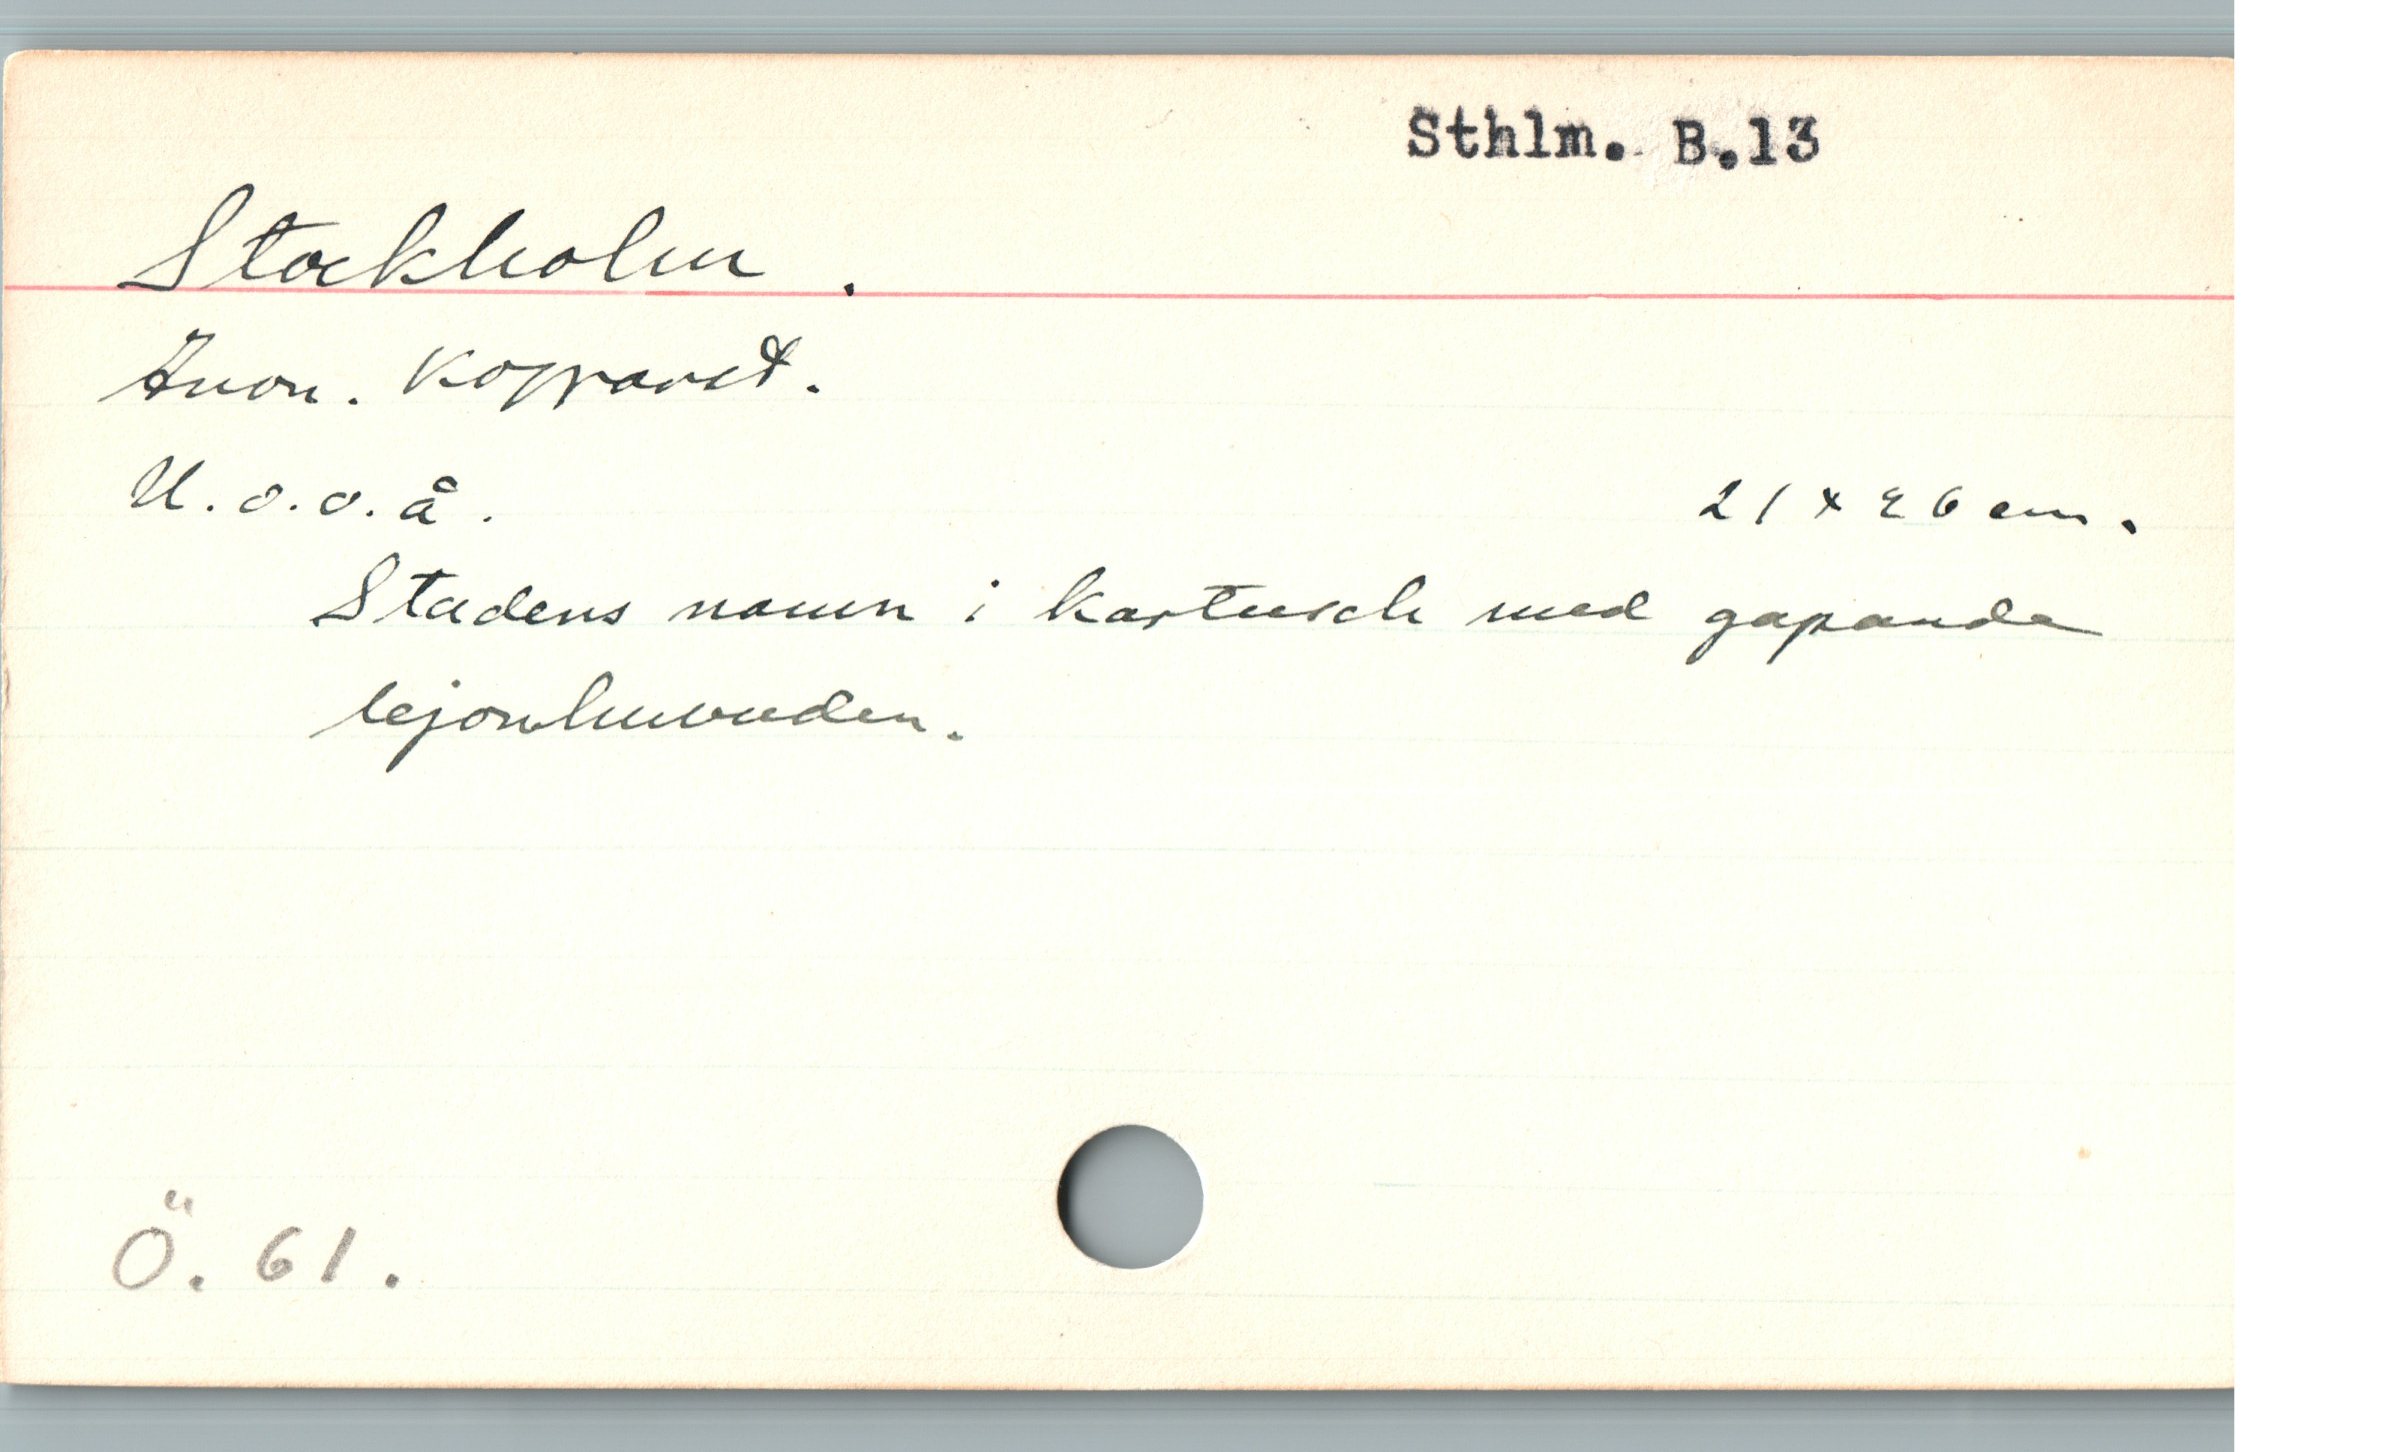 Sthlm. B.13
Stockholm.
Anon. kopparst.
U.o.o.å. 21 x 26 cm.
Stadens namn i kartusch med gapande
lejonhuvuden.
Ö. 61.